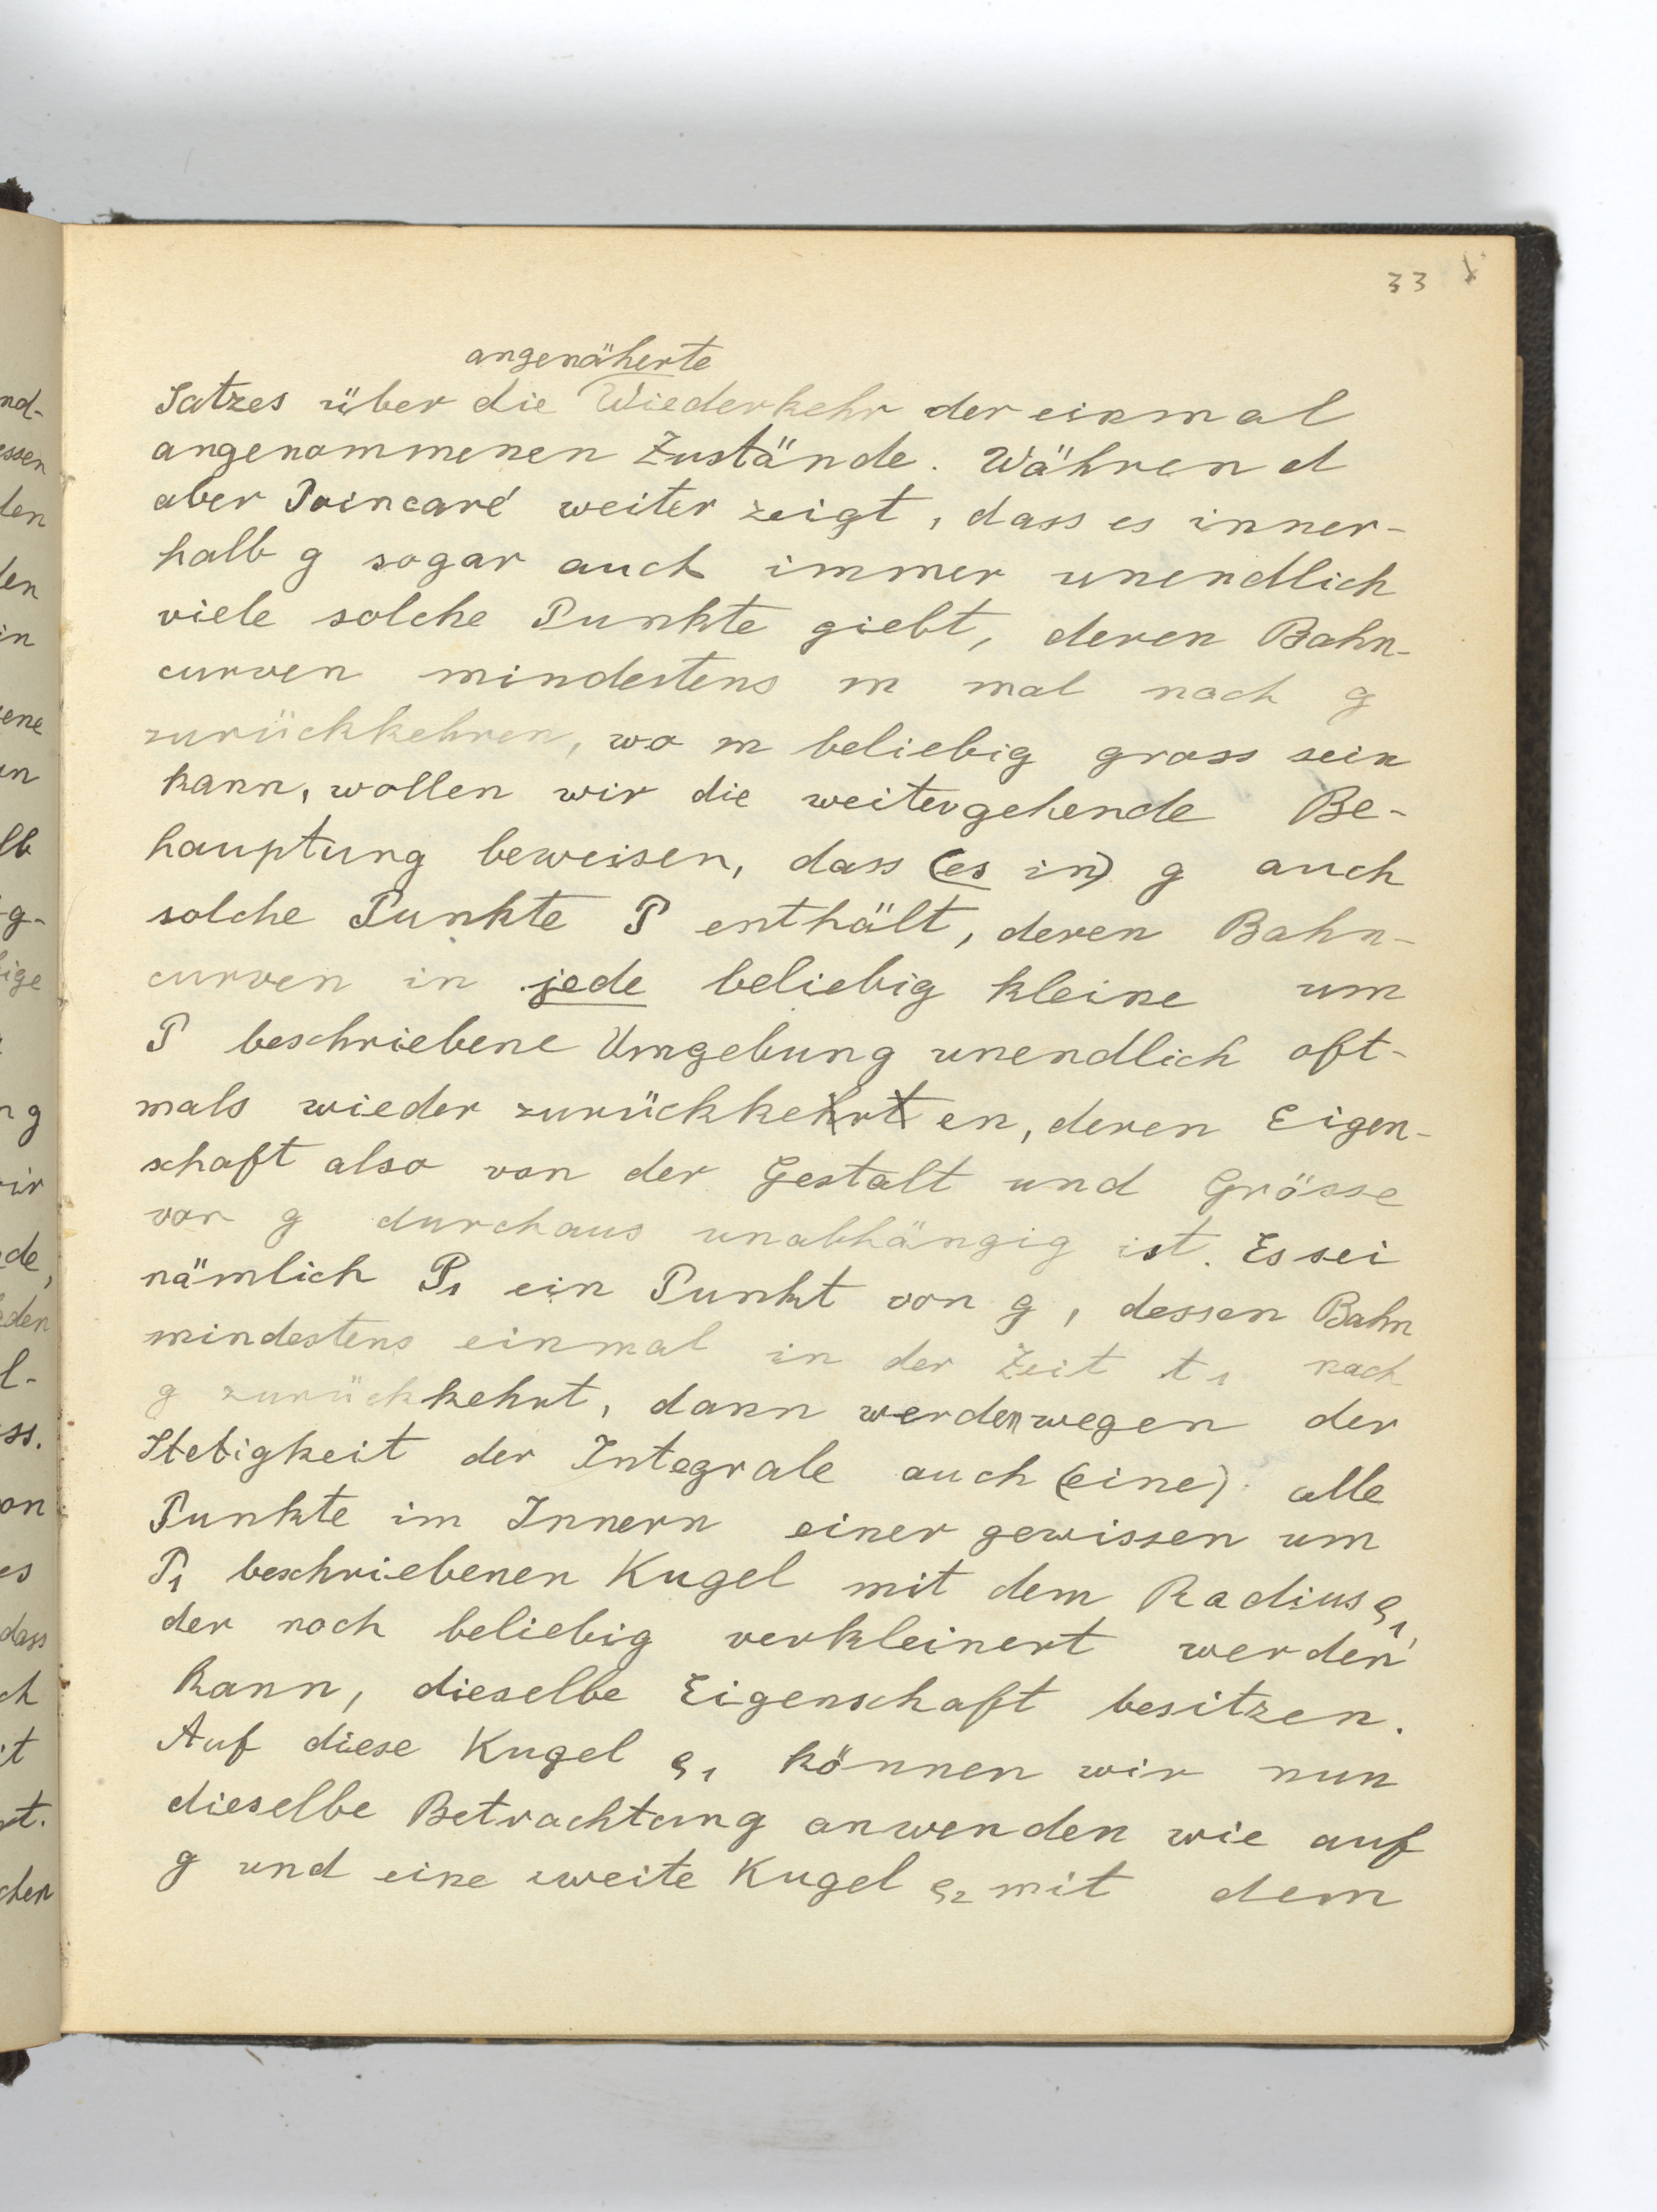 33
angenäherte
Satzes über die Wiederkehr der einmal
angenommenen Zustände. Während
aber Poincaré weiter zeigt, dass es inner-
halb g sogar auch immer unendlich
viele solche Punkte giebt, deren Bahn-
curven mindestens m mal nach g
zurückkehren, wo m beliebig gross sein
kann, wollen wir die weitergehende Be-
hauptung beweisen, dass (es in) g auch
solche Punkte P enthält, deren Bahn-
curven in jede beliebig kleine um
P beschriebene Umgebung unendlich oft-
mals wieder zurückkehrt en, deren Eigen-
schaft also von der Gestalt und Grösse
von g durchaus unabhängig ist. Es sei
nämlich P₁ ein Punkt von g, dessen Bahn
mindestens einmal in der Zeit t₁ nach
g zurückkehrt, dann werden wegen der
Stetigkeit der Integrale auch (eine) alle
Punkte im Innern einer gewissen um
P₁ beschriebenen Kugel mit dem Radius ϱ₁,
der noch beliebig verkleinert werden
kann, dieselbe Eigenschaft besitzen.
Auf diese Kugel ϱ₁ können wir nun
dieselbe Betrachtung anwenden wie auf
g und eine zweite Kugel ϱ₂ mit dem
nd-
essen
den
den
in
ene
en
lb
g-
ige
ng
ir
de,
eden
l-
ss.
on
es
dass
ch
it
t.
chen